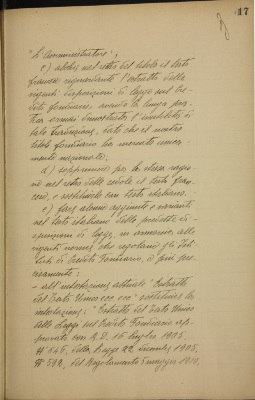 17
"L'Amministratore",
c) abolire nel retro del titolo il testo
francese riguardante l'estratto delle
vigenti disposizioni di legge sul Cre-
dito fondiario, avendo la lunga pra-
tica ormai dimostrato l'inutilità di
tale traduzione, dato che il nostro
titolo fondiario ha mercato unica-
mente nazionale;
d) sopprimere per la stessa ragio-
ne nel retro delle cedole il testo fran-
cese, e sostituirlo con testo italiano;
e) fare alcune aggiunte e varianti
nel testo italiano delle predette di-
sposizioni di legge, in armonia alle
vigenti norme che regolano gli Isti-
tuti di Credito Fondiario, e più pre-
cisamente:
- all'intestazione attuale "Estratto
del Testo Unico ecc ecc" sostituire la
intestazione: "Estratto del Testo Unico
delle Leggi sul Credito Fondiario ap-
provato con R.D. 16 Luglio 1905,
N° 646, della Legge 22 Dicembre 1905,
N° 592, del Regolamento 5 maggio 1910,